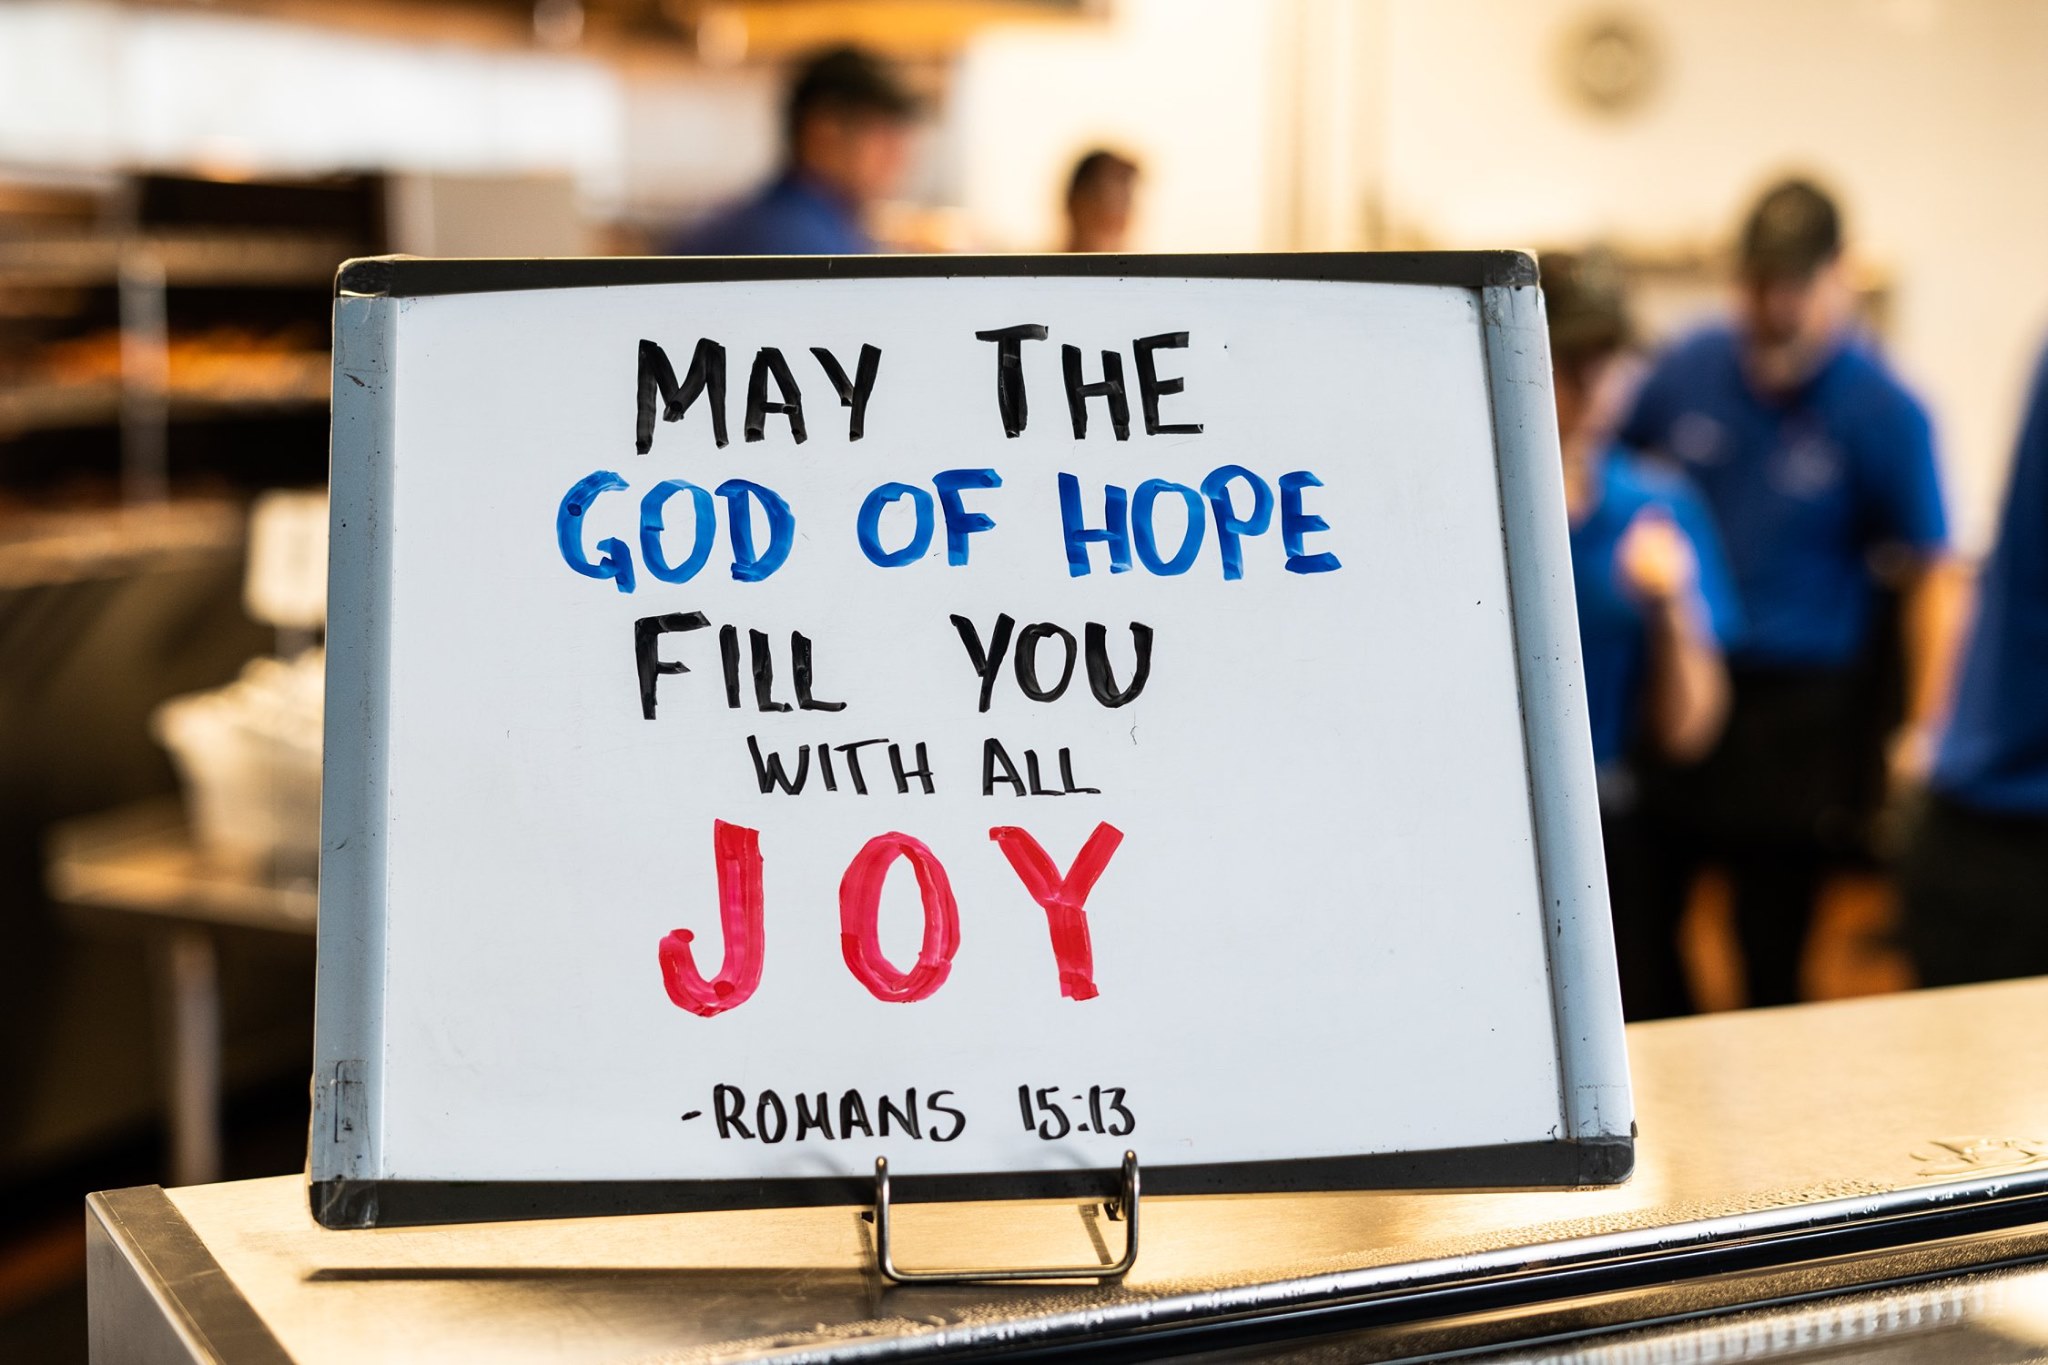 MAY THE
GOD OF HOPE
FILL YOU
WITH ALL
JOY
-ROMANS 15:13